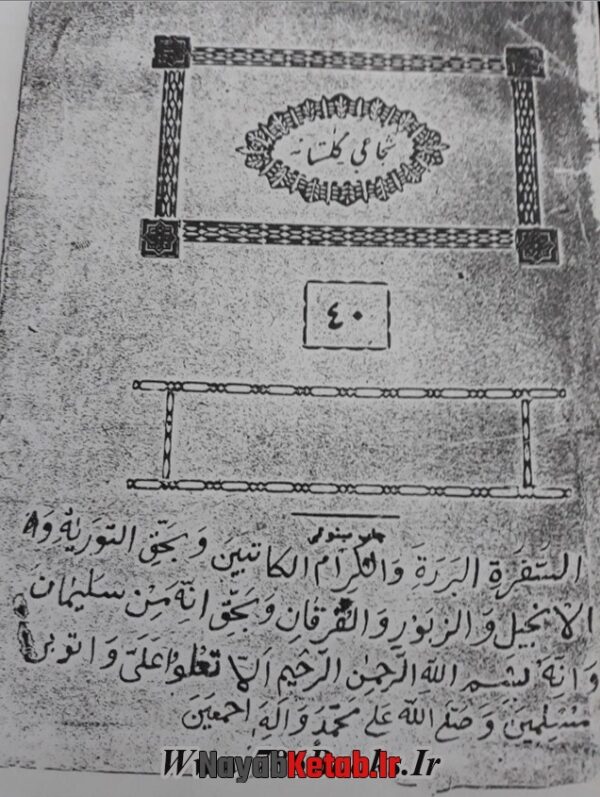 گلستانه
٤٠
السفرة البررة والكرام الكاتبين و بحق التورية وا
الانجيل والزبور والفرقان و بحق انه من سليمان
وانه بسم الله الرحمن الرحيم الا تعلوا علی واتونی
مسلمين و صلی الله علی محمد و اله اجمعين
NayabKetab.Ir